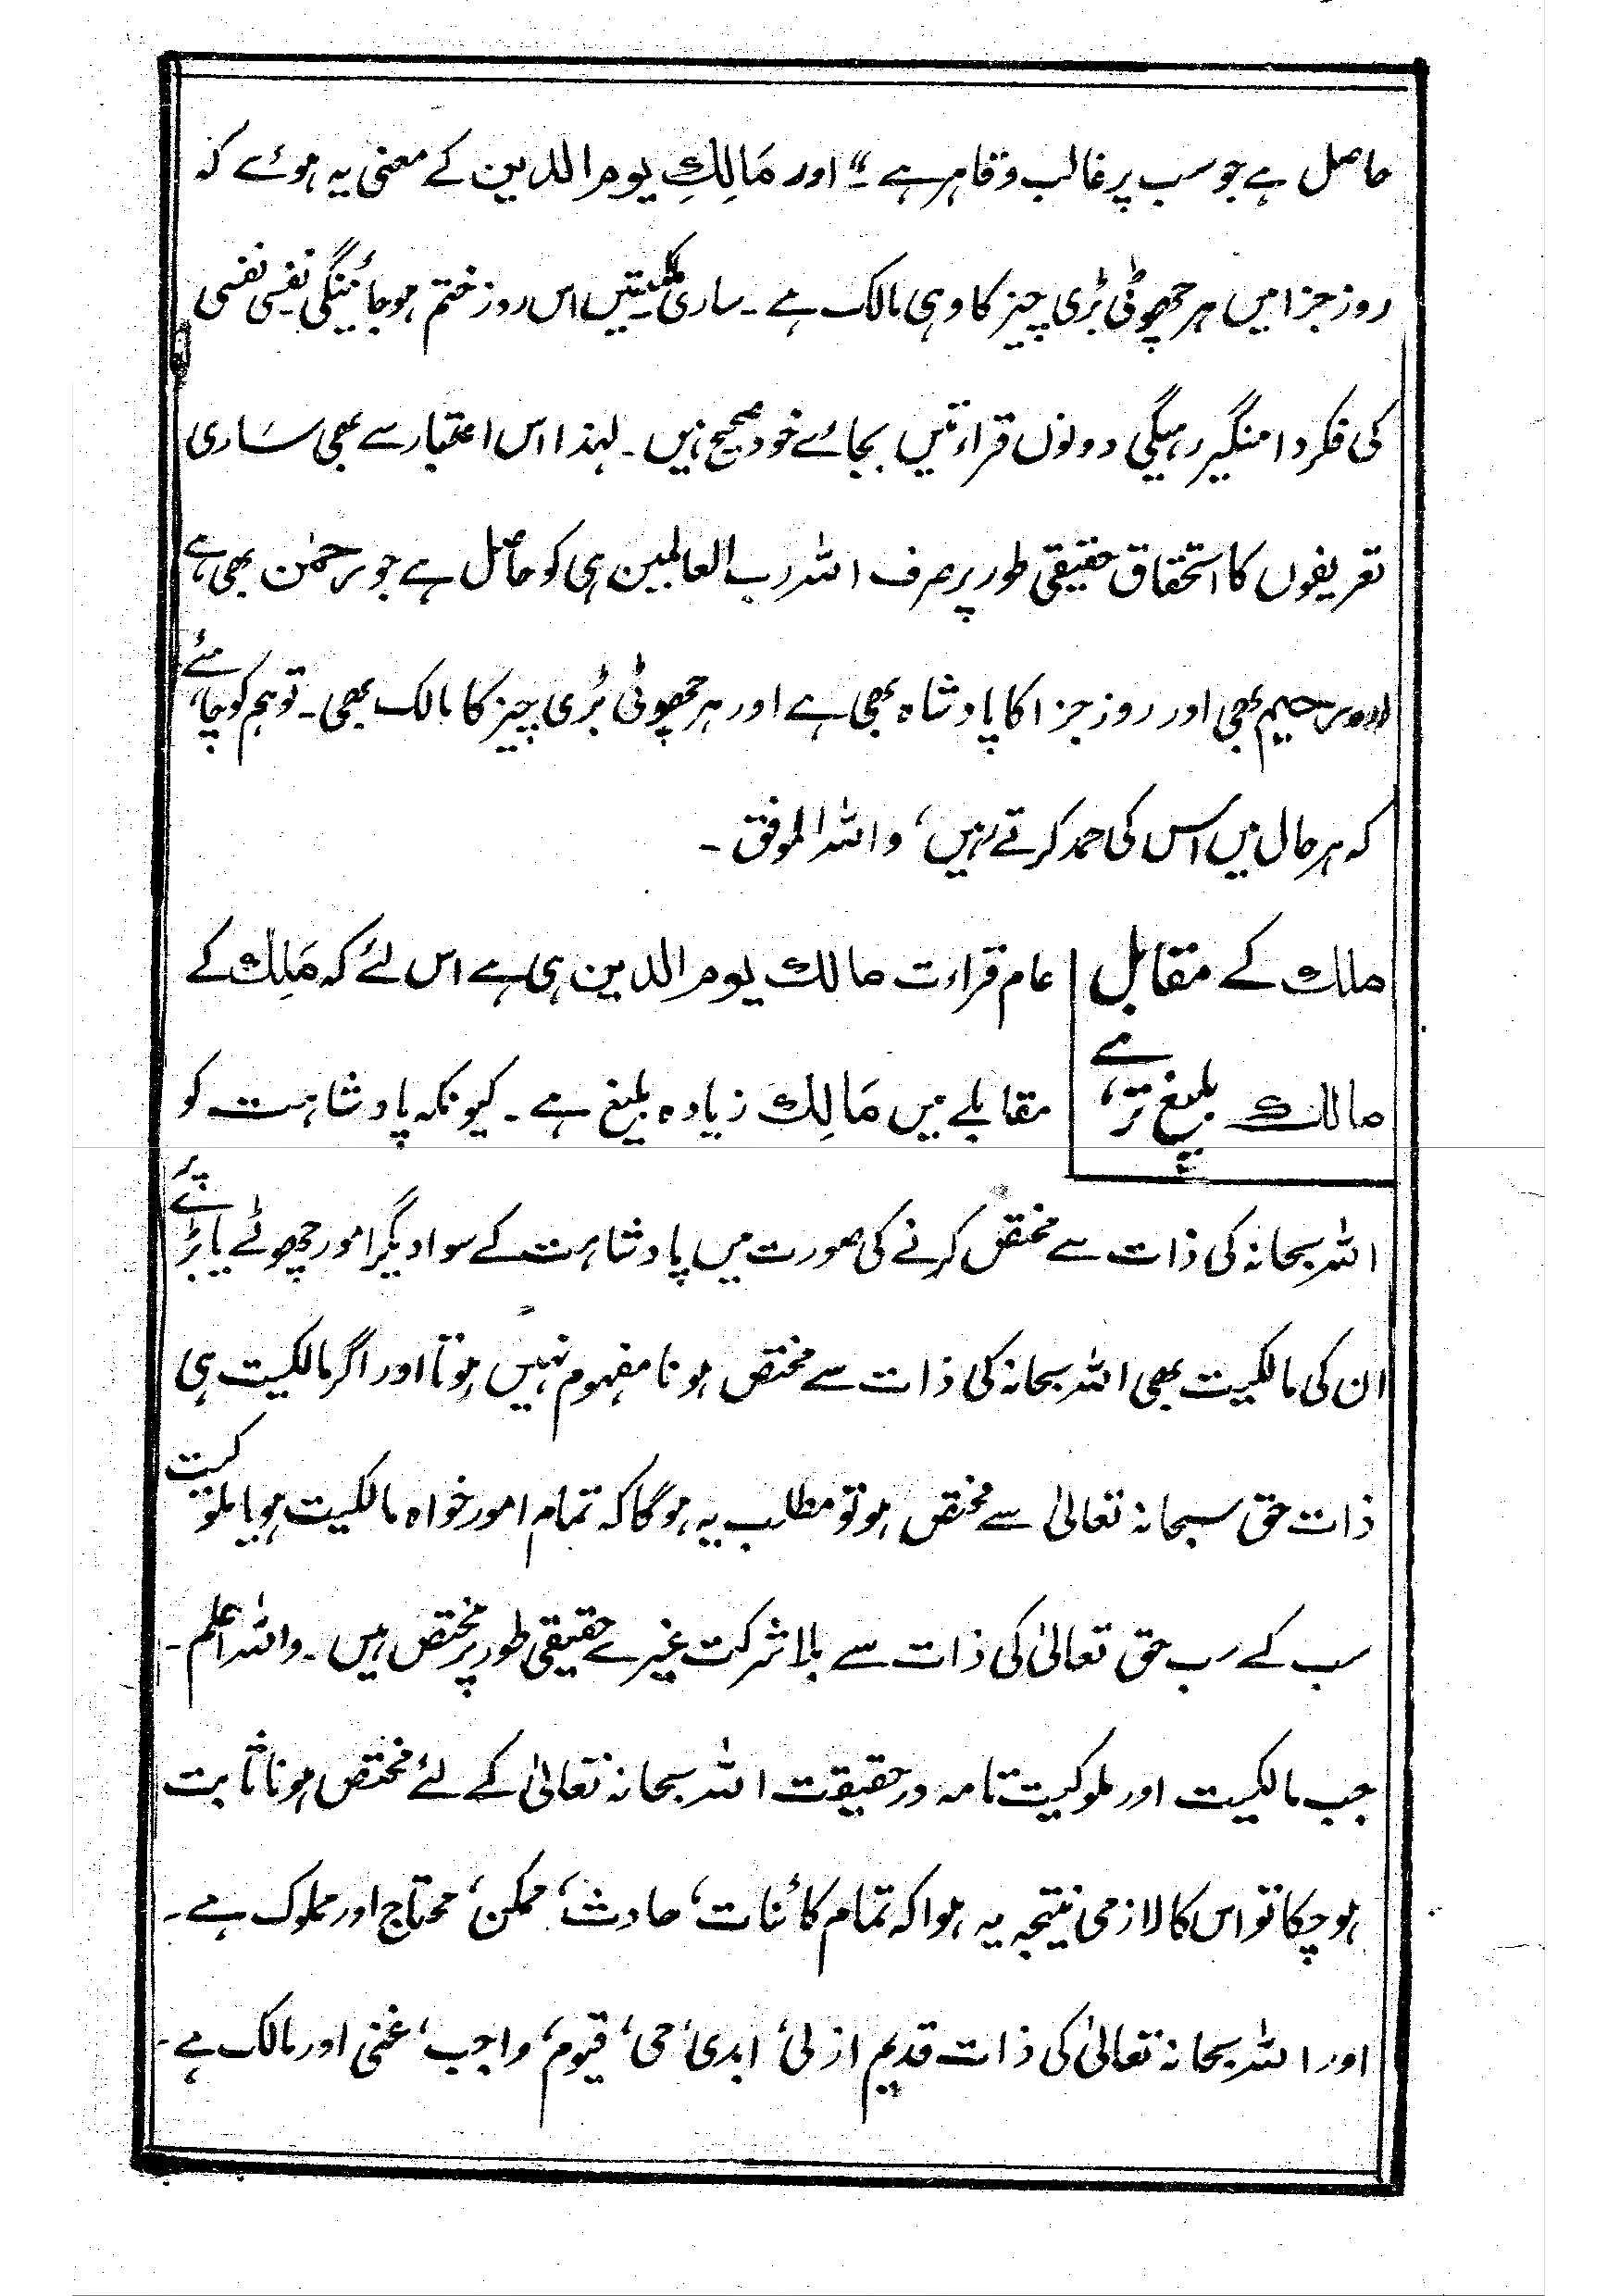 حاصل ہے جو سب پر غالب و قاہر ہے ۔‘‘ اور مَالِكِ یوم الدین کے معنی یہ ہوئے کہ
روز جزا میں ہر چھوٹی بڑی چیز کا وہی مالک ہے ۔ ساری ملکیتیں اس روز ختم ہوجائینگی نفسی نفسی
کی فکر دامنگیر رہیگی دونوں قراءتیں بجائے خود صحیح ہیں ۔ لہذا اس اعتبار سے بھی ساری
تعریفوں کا استحقاق حقیقی طور پر صرف اللہ رب العالمین ہی کو حاصل ہے جو رحمٰن بھی ہے
اور رحیم بھی اور روز جزا کا پادشاہ بھی ہے اور ہر چھوٹی بڑی چیز کا مالک بھی ۔ تو ہم کو چاہئے
کہ ہر حال میں اس کی حمد کرتے رہیں‘ واللہ الموفق ۔
ملك کے مقابل
مالك بلیغ تر ہے
عام قراءت مالك یوم الدین ہی ہے اس لئے کہ مَلِك کے
مقابلے میں مَالِك زیادہ بلیغ ہے ۔ کیونکہ پادشاہت کو
اللہ سبحانہ کی ذات سے مختص کرنے کی صورت میں پادشاہت کے سوا دیگر امور چھوٹے یا بڑے پر
ان کی مالکیت بھی اللہ سبحانہ کی ذات سے مختص ہونا مفہوم نہیں ہوتا اور اگر مالکیت ہی
ذات حق سبحانہ تعالیٰ سے مختص ہو تو مطلب یہ ہوگا کہ تمام امور خواہ مالکیت ہو یا ملوکیت
سب کے سب حق تعالیٰ کی ذات سے بلا شرکت غیرے حقیقی طور پر مختص ہیں ۔ واللہ اعلم ۔
جب مالکیت اور ملوکیت تامہ در حقیقت اللہ سبحانہ تعالیٰ کے لئے مختص ہونا ثابت
ہو چکا تو اس کا لازمی نتیجہ یہ ہوا کہ تمام کائنات‘ حادث‘ ممکن‘ محتاج اور مملوک ہے ۔
اور اللہ سبحانہ تعالیٰ کی ذات قدیم ازلی‘ ابدی‘ حی‘ قیوم‘ واجب‘ غنی اور مالک ہے ۔